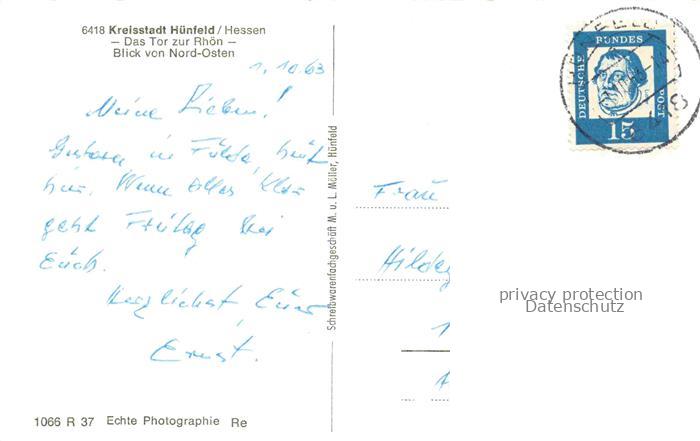 6418 Kreisstadt Hünfeld / Hessen
– Das Tor zur Rhön –
Blick von Nord-Osten
1.10.63
Meine Lieben!
Gestern in Fulda, heut
hier. Wenn alles klar
geht Freitag bei
Euch.
Herzlichst Euer
Ernst.
1066 R 37 Echte Photographie Re
Schreibwarenfachgeschäft M. u. L. Müller, Hünfeld
DEUTSCHE
BUNDES
POST
15
Frau
Hildeg
1
privacy protection
Datenschutz